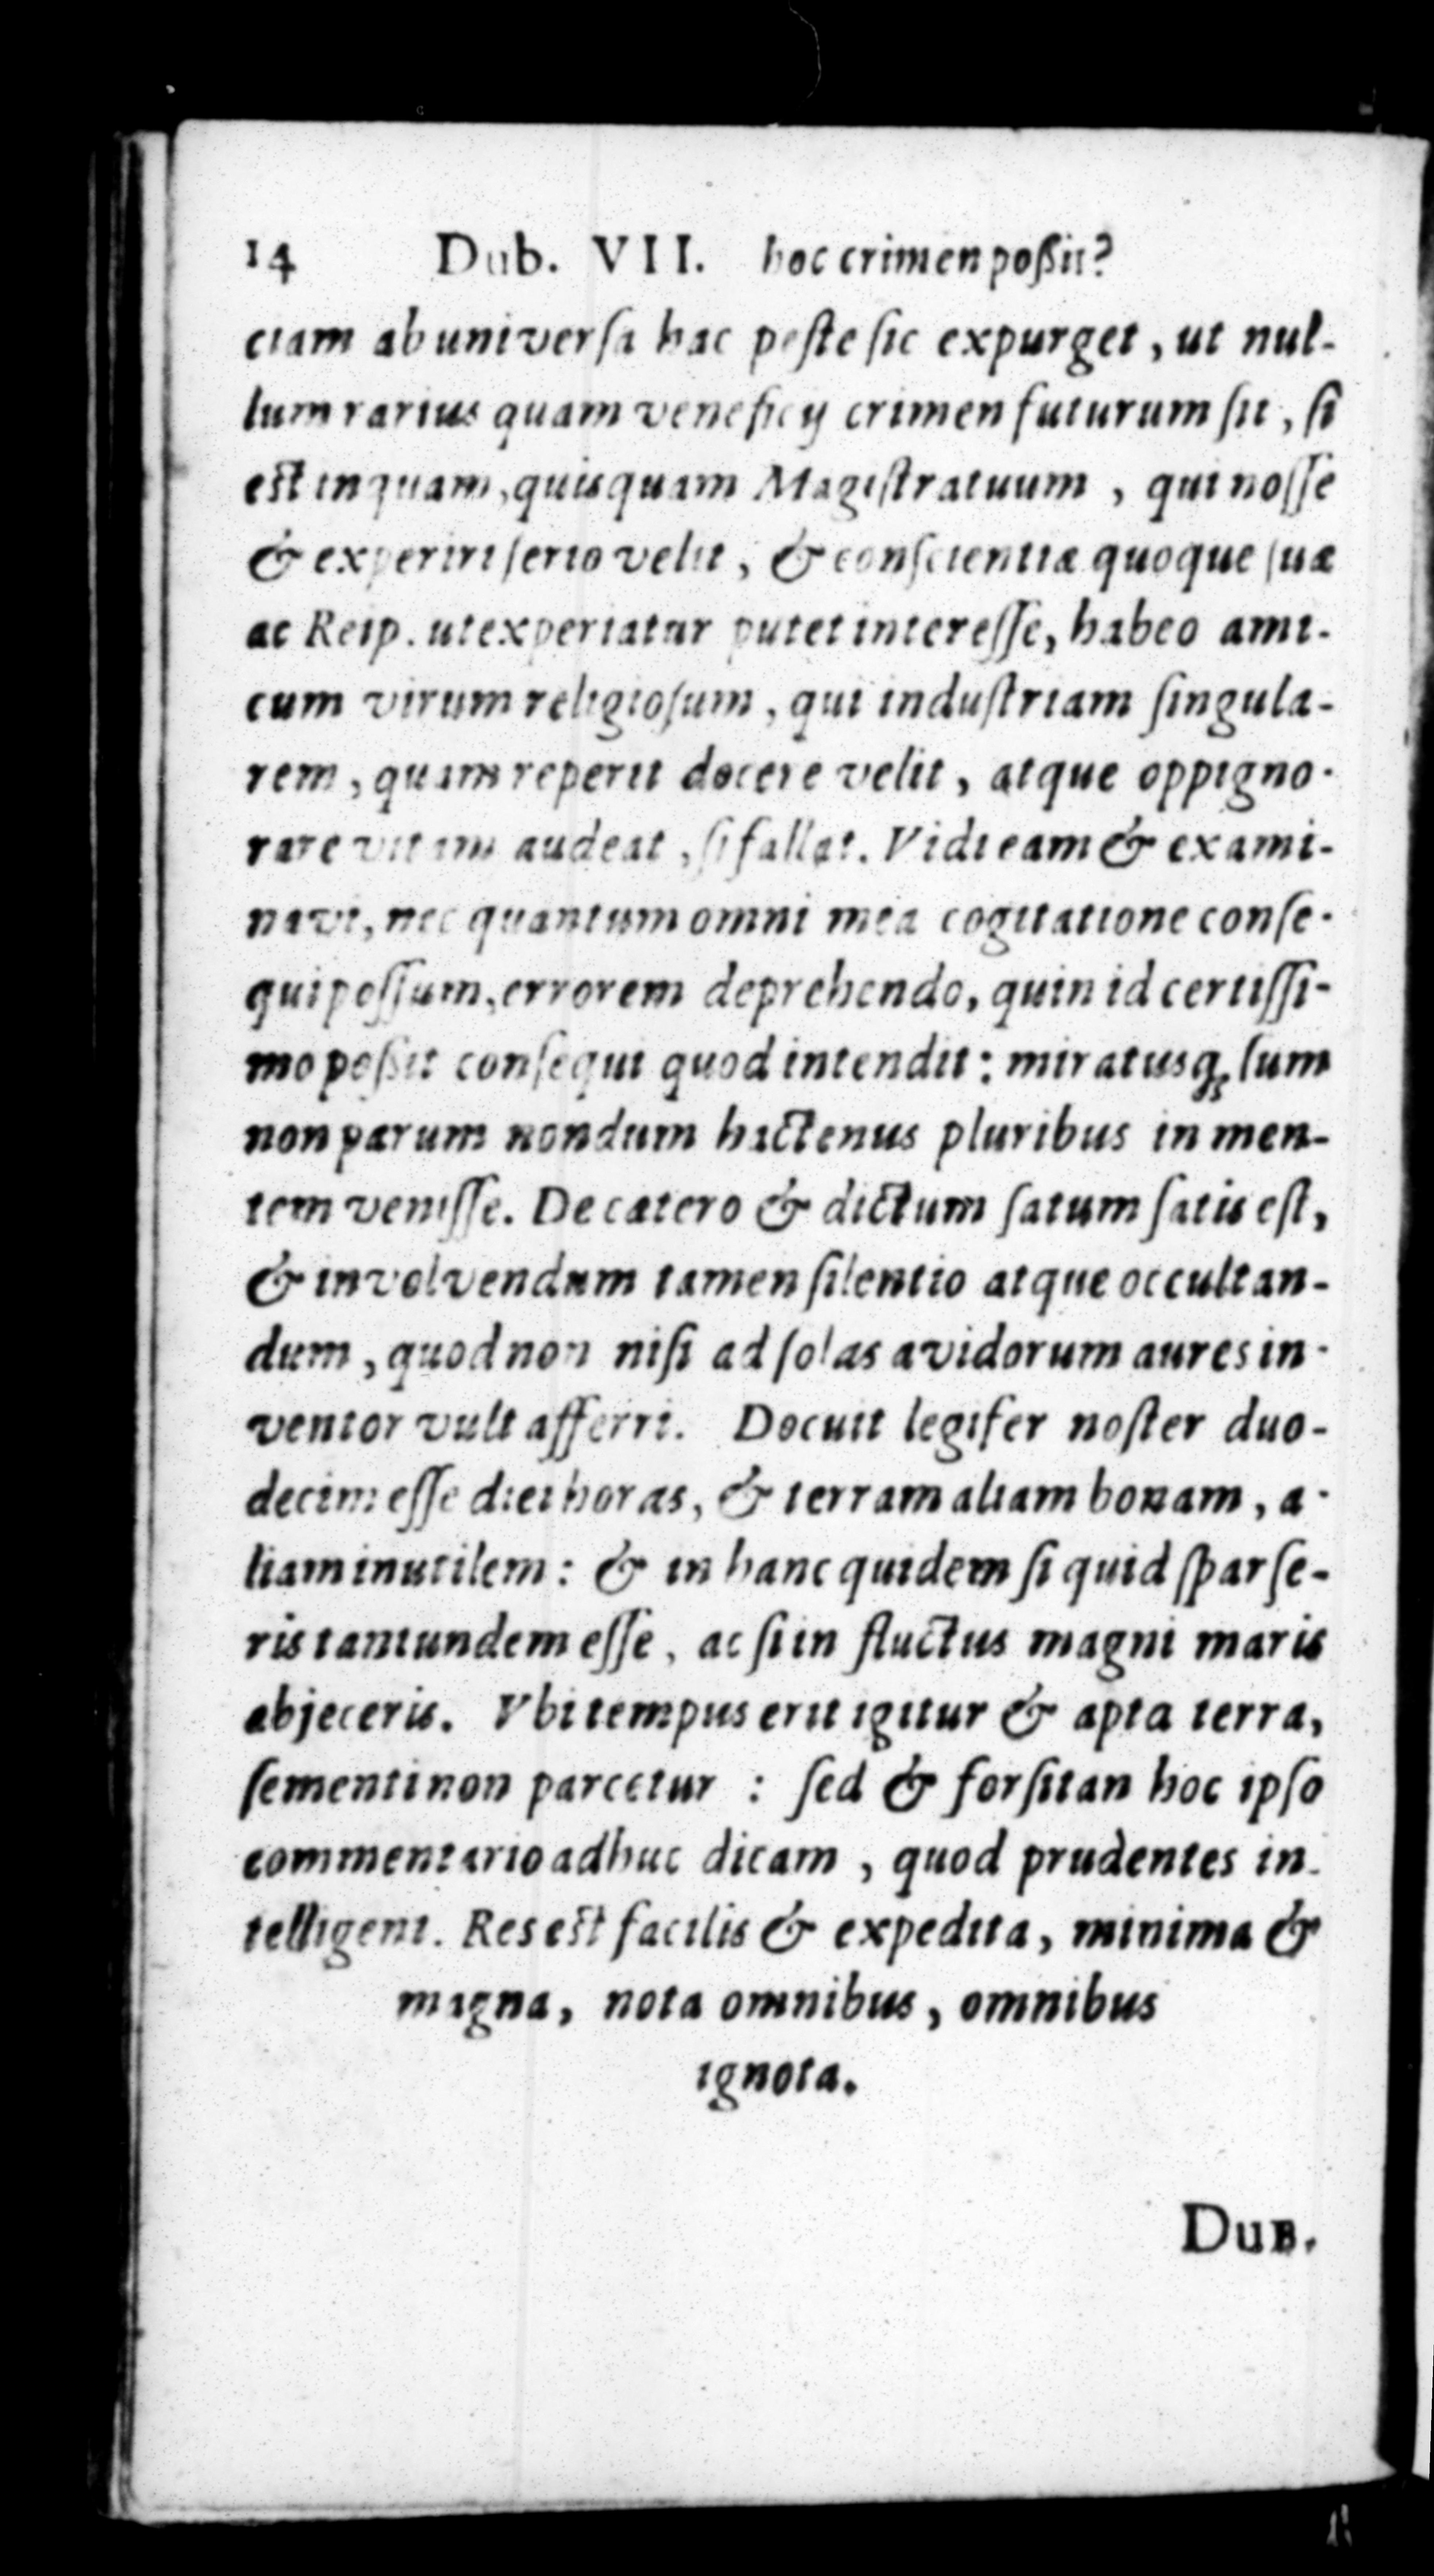 14 Dub. VII. hoc crimen poßit?
ciam ab universa hac peste sic expurget, ut nul-
lum rarius quam veneficij crimen futurum sit, si
est inquam, quisquam Magistratuum, qui nosse
& experiri serio velit, & conscientiæ quoque suæ
ac Reip. ut experiatur putet interesse, habeo ami-
cum virum religiosum, qui industriam singula-
rem, quam reperit docere velit, atque oppigno-
rare vitam audeat, si fallat. Vidi eam & exami-
navi, nec quantum omni mea cogitatione conse-
qui possum, errorem deprehendo, quin id certissi-
mo poßit consequi quod intendit: miratusq; sum
non parum nondum hactenus pluribus in men-
tem venisse. De cætero & dictum satum satis est,
& involvendum tamen silentio atque occultan-
dum, quod non nisi ad solas avidorum aures in-
ventor vult afferri. Docuit legifer noster duo-
decim esse diei horas, & terram aliam bonam, a-
liam inutilem: & in hanc quidem si quid sparse-
ris tantundem esse, ac si in fluctus magni maris
abjeceris. Vbi tempus erit igitur & apta terra,
sementi non parcetur: sed & forsitan hoc ipso
commentario adhuc dicam, quod prudentes in-
telligent. Res est facilis & expedita, minima &
magna, nota omnibus, omnibus
ignota.
Dub.